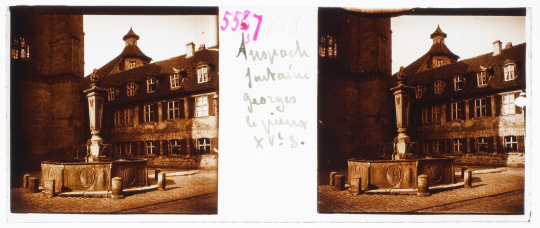 5567
Anspach
fontaine
georges
le pieux
XVe S.